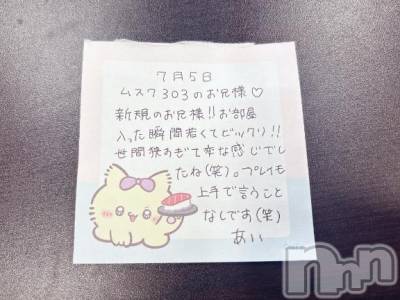 7月5日
ムスク303のお兄様♡
新規のお兄様!!お部屋
入った瞬間若くてビックリ!!
世間狭すぎて変な感じでし
たね(笑)。プレイも
上手で言うこと
なしです(笑)
あい
nnn